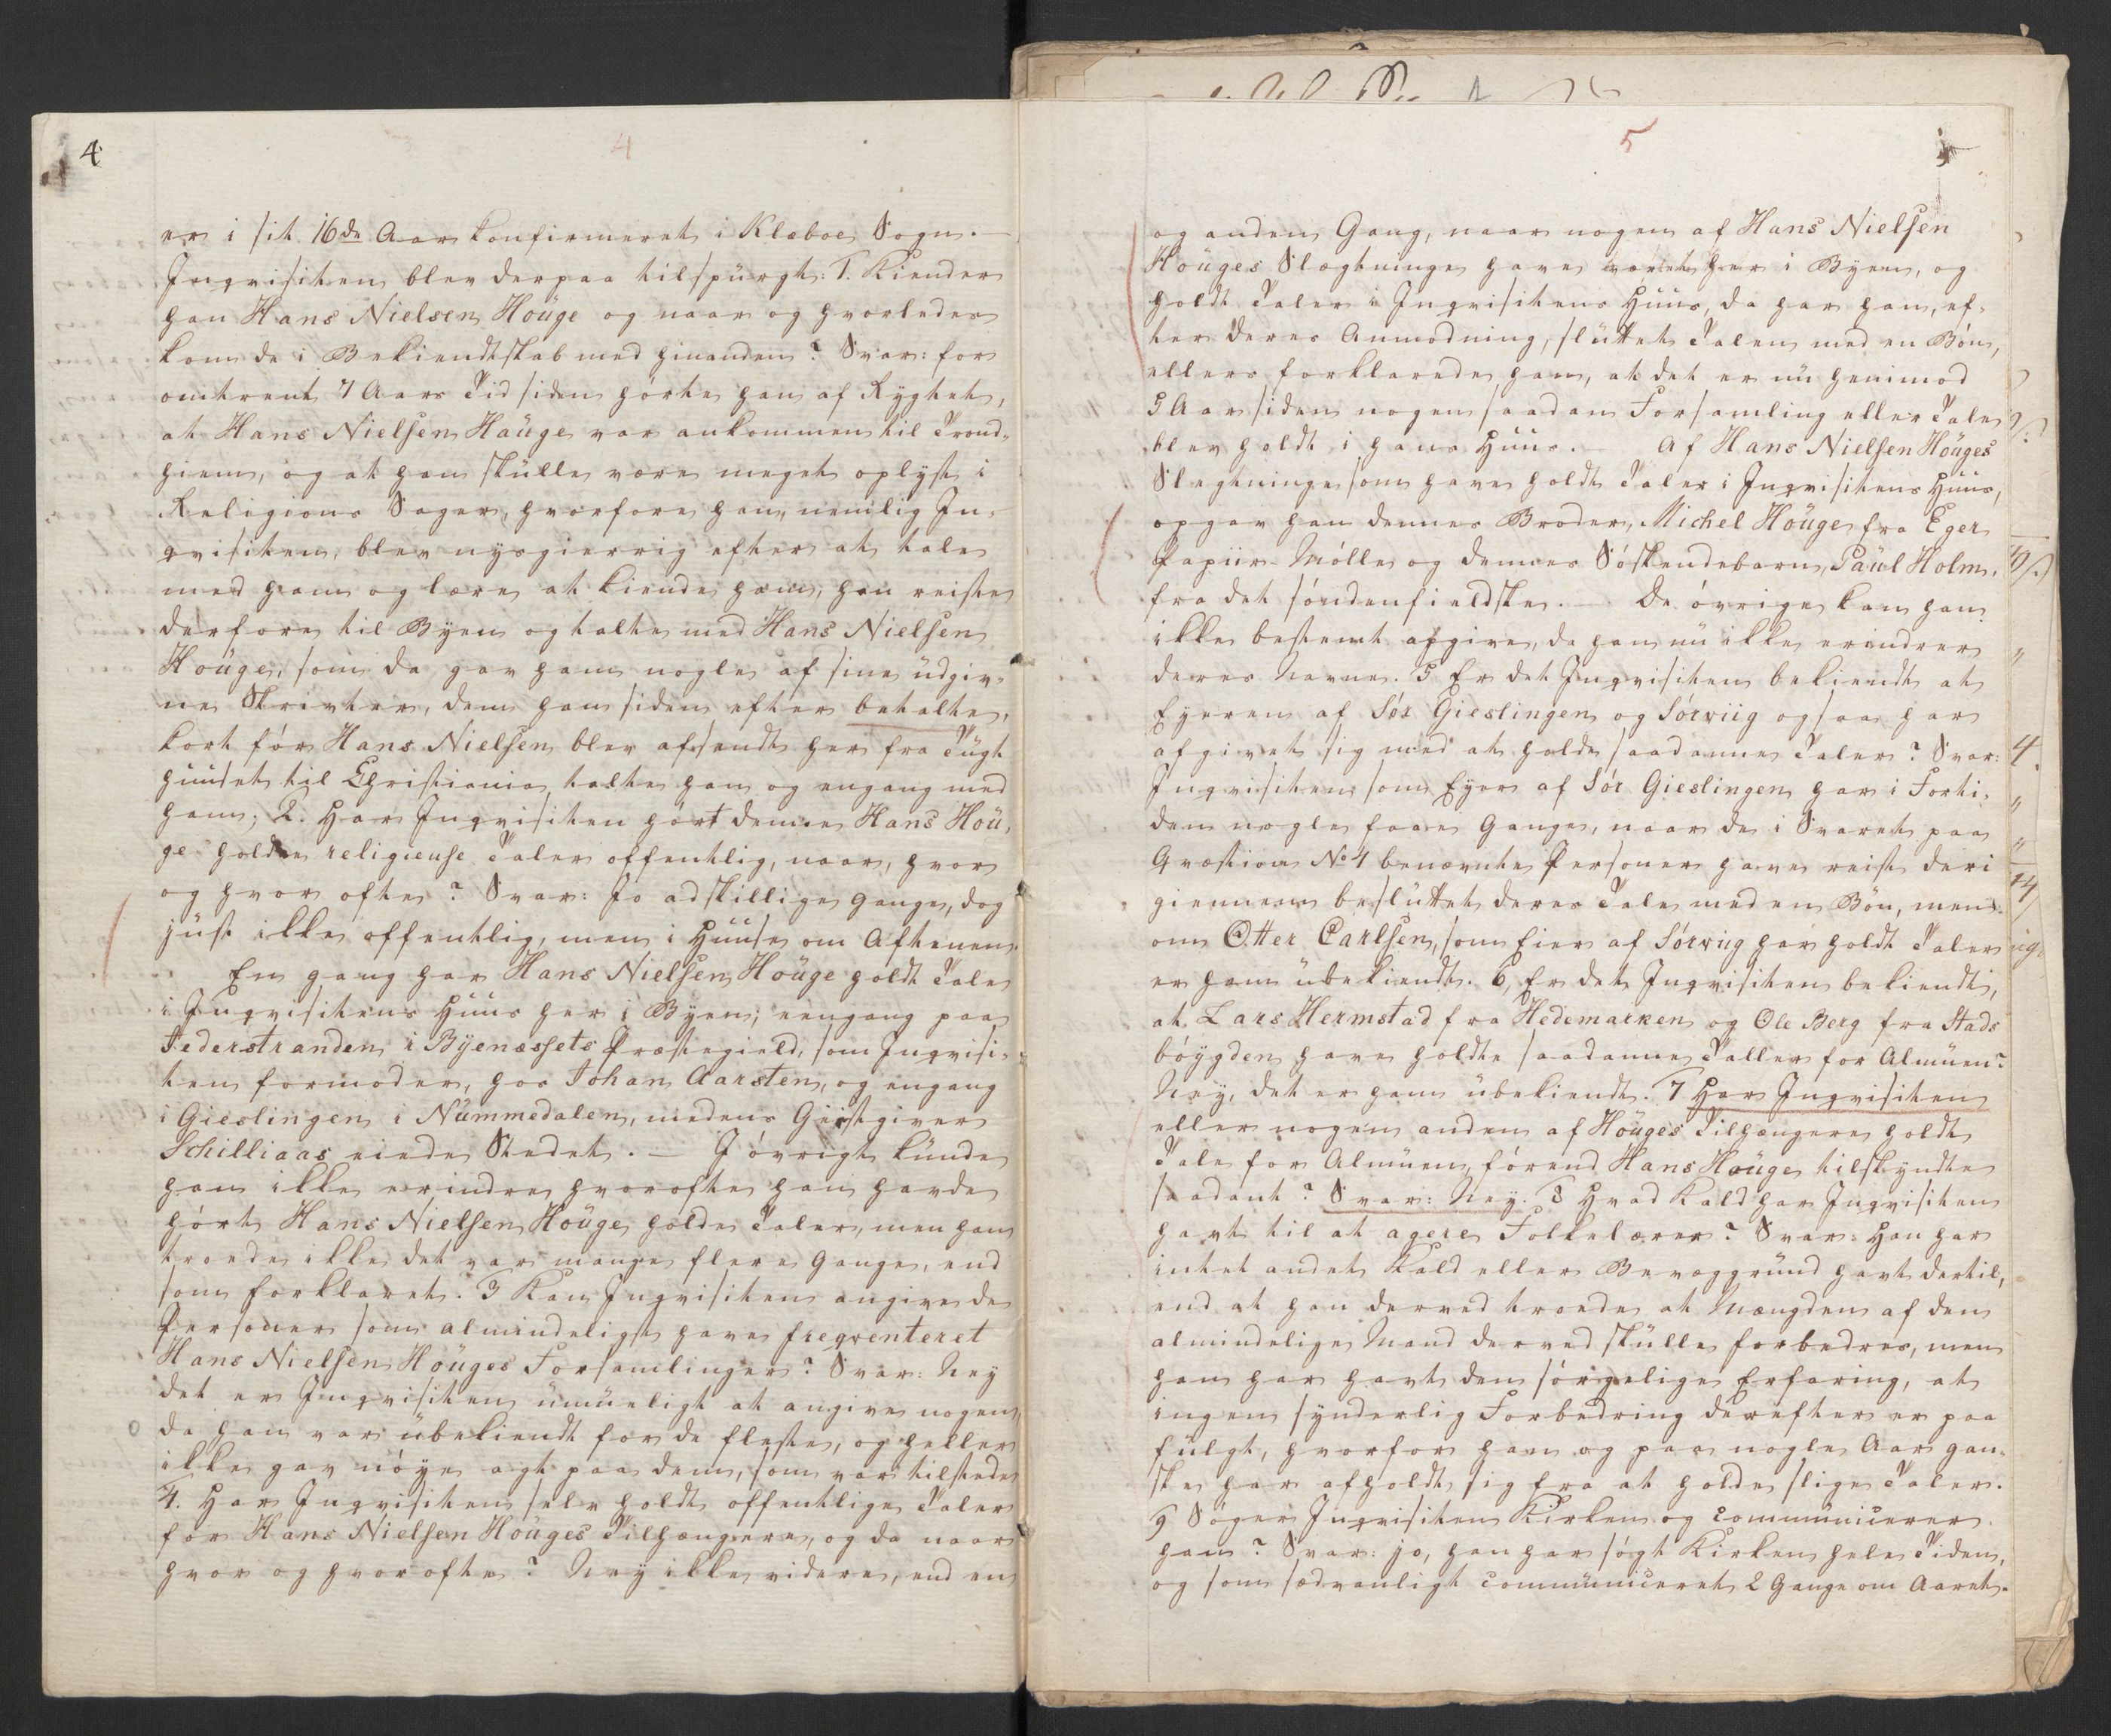 4
4
er i sit 16de Aar konfirmeret i Klæboe Sogn.—
Inqvisiten blev derpaa tilspürgt: 1. Kiender
han Hans Nielsen Houge og naar og hvorledes
kom de i Bekiendtskab med hinanden? Svar: for
omtrent 7 Aars Tid siden hørte han af Rygtet,
at Hans Nielsen Haüge var ankommen til Trond-
hiem, og at han skülle være meget oplyst i
Religions Sager, hvorfore han, nemlig In-
qvisiten, blev nysgierrig efter at tale
med ham og lære at kiende ham, han reiste
derfore til Byen og talte med Hans Nielsen
Houge, som da gav ham nogle af sine üdgiv-
ne Skrivter, dem han siden efter betalte,
kort før Hans Nielsen blev afsendt her fra Tügt
hüüset til Christiania, talte han og engang med
ham; 2. Har Inqvisiten hørt denne Hans Hoü-
ge holden religieuse Taler offentlig, naar, hvor
og hvor ofte? Svar: Jo adskillige gange, dog
jüst ikke offentlig, men i Hüüse om Aftenen.
En gang har Hans Nielsen Houge holdt Tale
i Inqvisitens Hüüs her i Byen; eengang paa
Federstranden i Byenæssets Præstegield, som Inqvisi-
ten formoder, hos Johan Aarsten, og engang
i Gieslingen i Nümmedalen, medens Giestgiver
Schilliaas eiede Stedet.— I øvrigt künde
han ikke erindre hvorofte han havde
hørt Hans Nielsen Houge holde Taler, men han
troede ikke det var mange flere Gange, end
som forklaret. 3 Kan Inqvisiten angive de
Personer som almindeligst have freqventeret
Hans Nielsen Houges Forsamlinger? Svar: Ney
det er Inqvisiten ümüeligt at angive nogen,
da han var übekiendt for de fleste, og heller
ikke gav nøye agt paa dem, som var tilstede
4. Har Inqvisiten selv holdt offentlige Taler
for Hans Nielsen Houges Tilhængere, og da naar
hvor og hvor ofte? Ney ikke videre, end en
5
5
og anden Gang, naar nogen af Hans Nielsen
Houges Slægtninge have været her i Byen, og
holdt Taler i Inqvisitens Hüüs, da har han, ef-
ter deres Anmodning, slüttet Talen med en Bøn,
ellers forklarede han, at det er nü henimod
5 Aar siden nogen saadan Forsamling eller Tale
blev holdt i hans Hüüs.— Af Hans Nielsen Houges
Slegtninge som have holdt Taler i Inqvisitens Hüüs,
opgav han dennes Broder, Michel Houge fra Eger
Papiir-Mølle og dennes Søskendebarn, Paul Holm,
fra det søndenfieldske.— De øvrige kan han
ikke bestemt afgive, da han nü ikke erindrer
deres Navne. 5 Er det Inqvisiten bekiendt at
Eyeren af Sør Gieslingen og Sørviig ogsaa har
afgivet sig med at holde saadanne Taler? Svar:
Inqvisiten som Eyer af Sør Gieslingen har i Forti-
den nogle faae Gange, naar de i Svaret paa
Qvæstion No 4 benævnte Personer have reist deri
giennem beslüttet deres Tale med en Bøn, men
om Otter Carlsen, som Eier af Sørviig har holdt Taler
er ham übekiendt. 6, Er det Inqvisiten bekiendt,
at Lars Hermstad fra Hedemarken og Ole Berg fra Stads
bøygden have holdte saadanne Taller for Almüen?
Ney, det er ham übekiendt. 7 Har Inqvisiten
eller nogen anden af Houges Tilhængere holdt
Tale for Almüen, førend Hans Houge tilskyndte
saadant? Svar: Ney. 8 Hvad Kald har Inqvisiten
havt til at agere Folkelærer? Svar: Han har
intet andet Kald eller Bevæggründ havt dertil,
end at han derved troede at Mængden af den
almindelige Mand derved skülle forbedres, men
han har havt den sørgelige Erfaring, at
ingen synderlig Forbedring derefter er paa
fülgt, hvorfor han og paa nogle Aar gan-
ske har afholdt sig fra at holde slige Taler.
9 Søger Inqvisiten Kirken og communicerer
han? Svar: jo, han har søgt Kirken hele Tiden,
og som sædvanligt communiceret 2 Gange om Aaret.